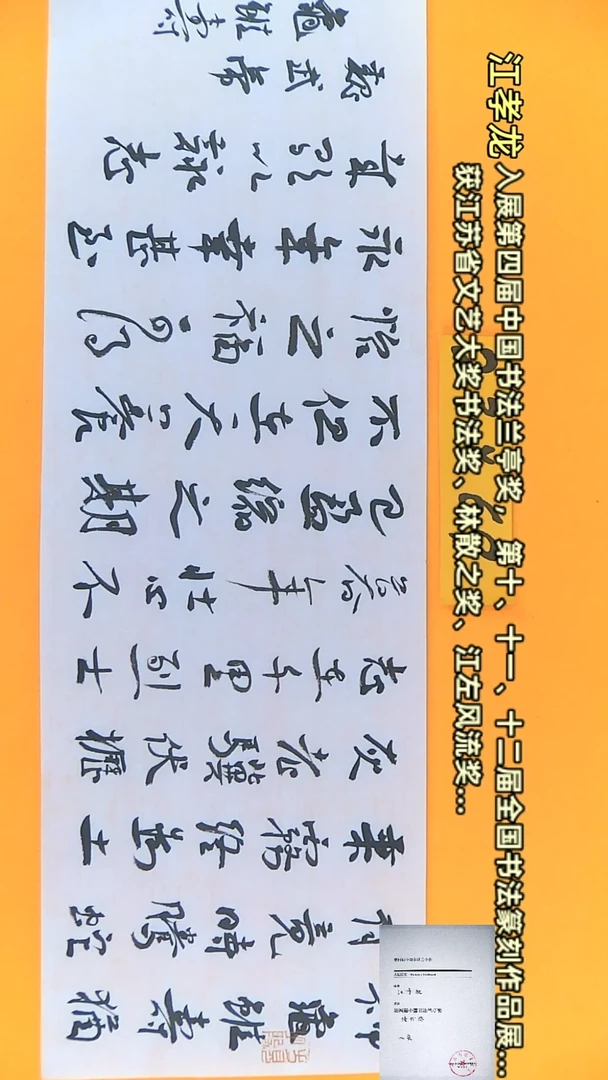 江孝龙 入展第四届中国书法兰亭奖，第十、十一、十二届全国书法篆刻作品展...
获江苏省文艺大奖书法奖、林散之奖、江左风流奖...
神龜雖壽猶
有竟時騰蛇
乘霧終為土
灰老驥伏櫪
志在千里烈士
暮年壯心不
已盈縮之期
不但在天養
怡之福可得
永年幸甚至
哉歌以詠志
魏武帝
龜雖壽